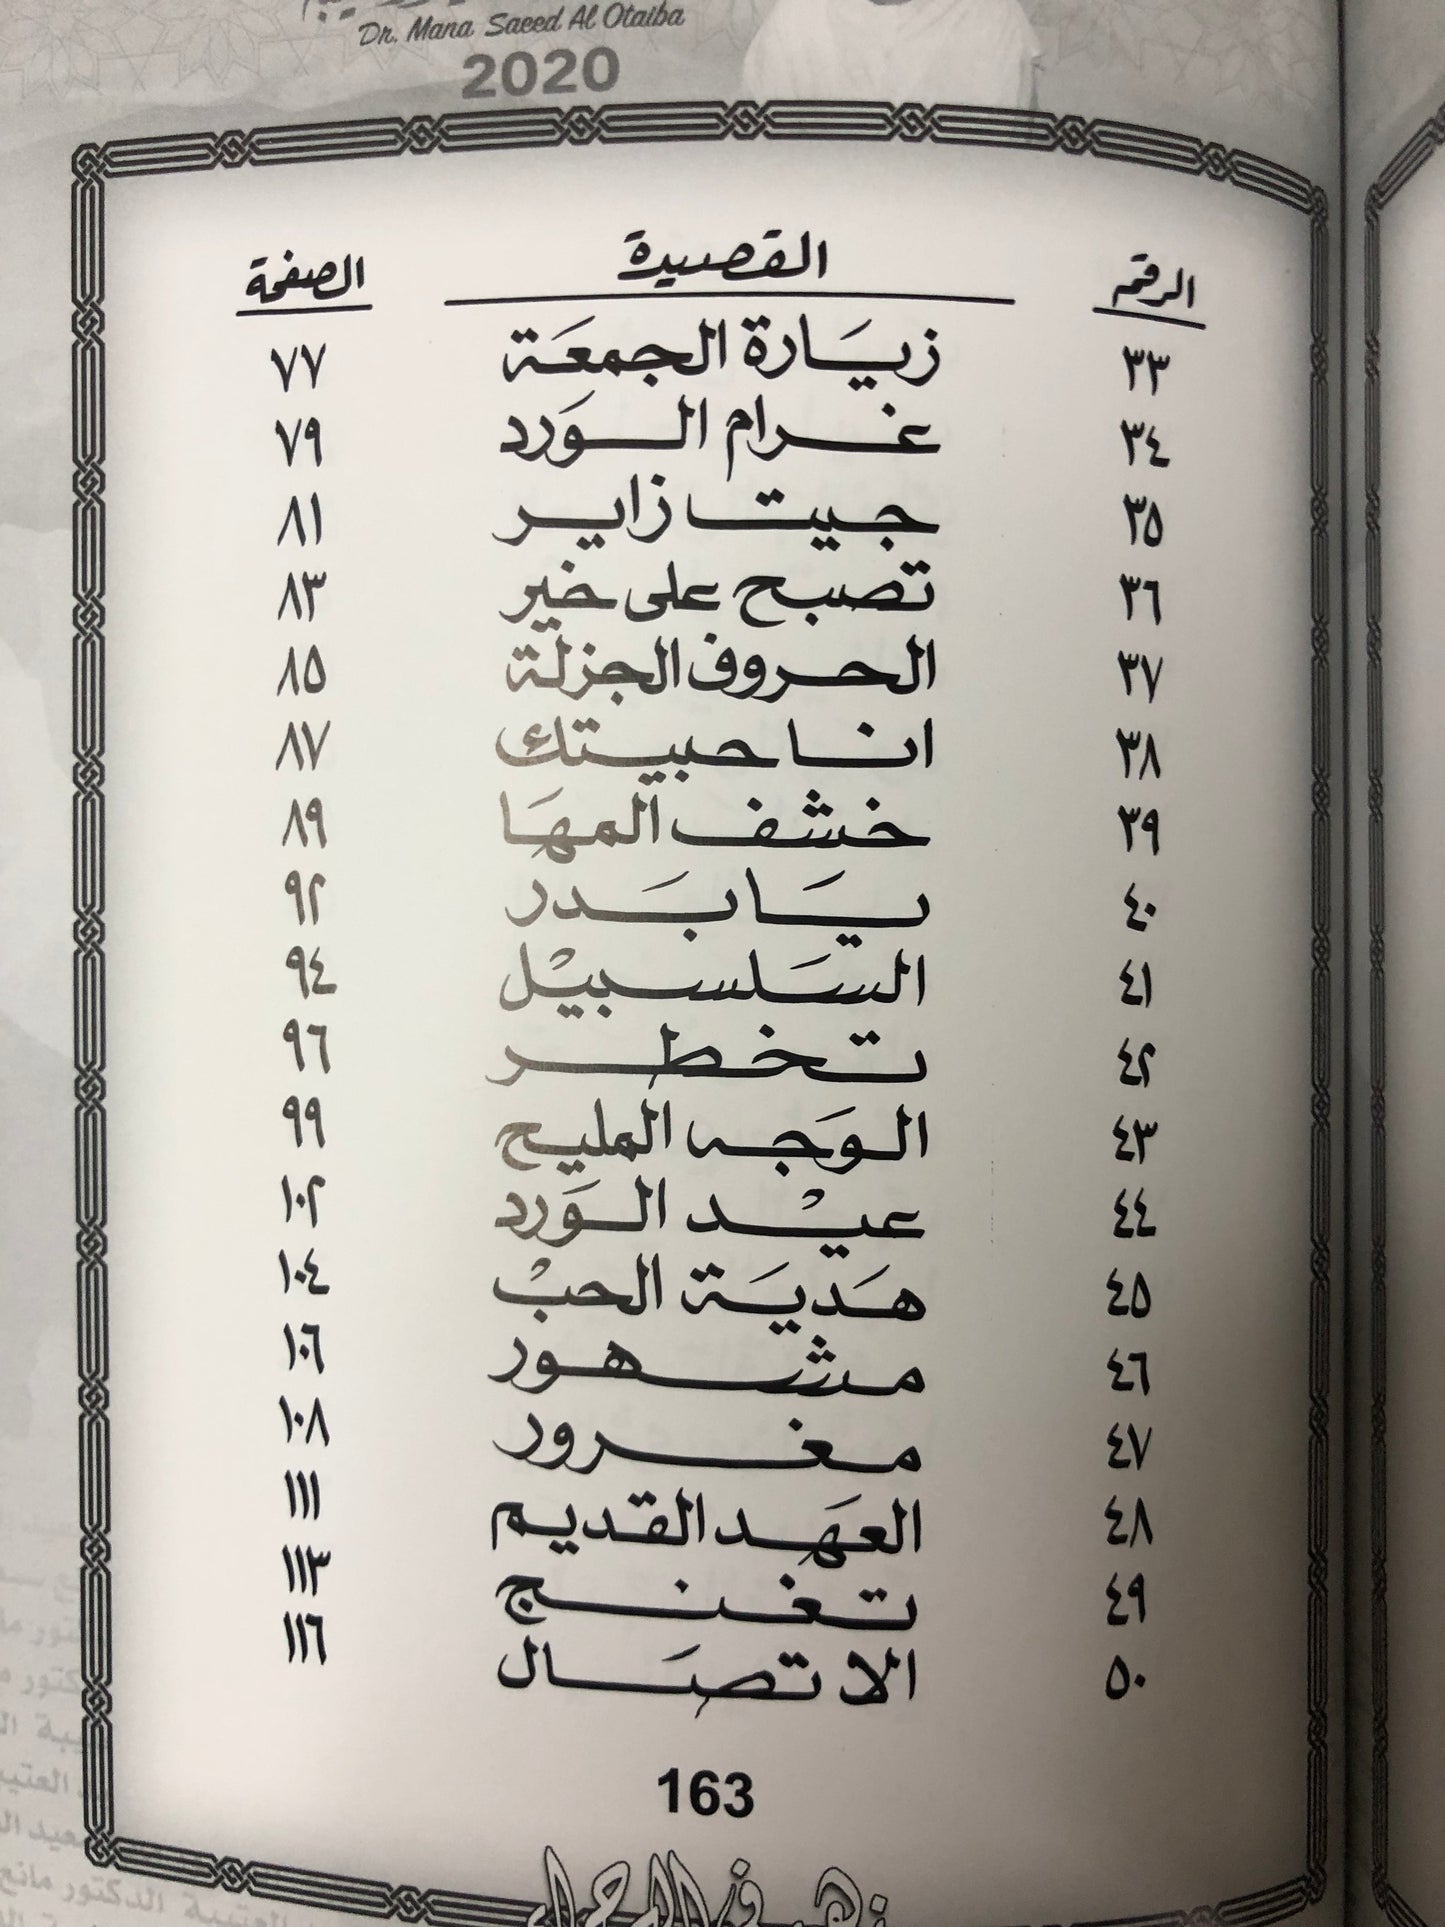 Dr. Mana Saeed Al Otaiba
2020
الرقم القصيدة الصفحة
٣٣ زيَارة الجمعَة ٧٧
٣٤ غرام الوَرد ٧٩
٣٥ جيت زاير ٨١
٣٦ تصبح على خير ٨٣
٣٧ الحروف الجزلة ٨٥
٣٨ انا حبيتك ٨٧
٣٩ خشف المهَا ٨٩
٤٠ يَا بَدر ٩٢
٤١ السَلسبيْل ٩٤
٤٢ تخطر ٩٦
٤٣ الوَجه المليح ٩٩
٤٤ عيْد الوَرد ١٠٢
٤٥ هَديَة الحبْ ١٠٤
٤٦ مشهور ١٠٦
٤٧ مغرور ١٠٨
٤٨ العهَد القديم ١١١
٤٩ تغنج ١١٣
٥٠ الاتصَال ١١٦
163